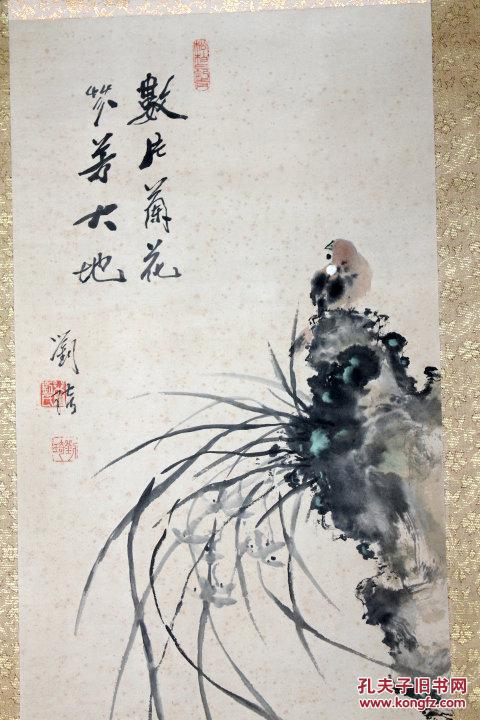 數片蘭花
笑着大地
劉
孔夫子旧书网
www.kongfz.com